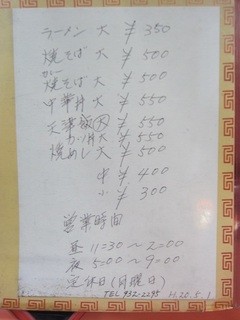 ラーメン 大 ¥350
焼そば 大 ¥500
カレー
焼そば 大 ¥500
中華丼 大 ¥550
天津飯 大 ¥550
カツ丼 大 ¥550
焼めし 大 ¥500
中 ¥400
小 ¥300
営業時間
昼 11=30～2=00
夜 5=00～9=00
定休日(月曜日)
TEL 932-2295 H.20.5.1